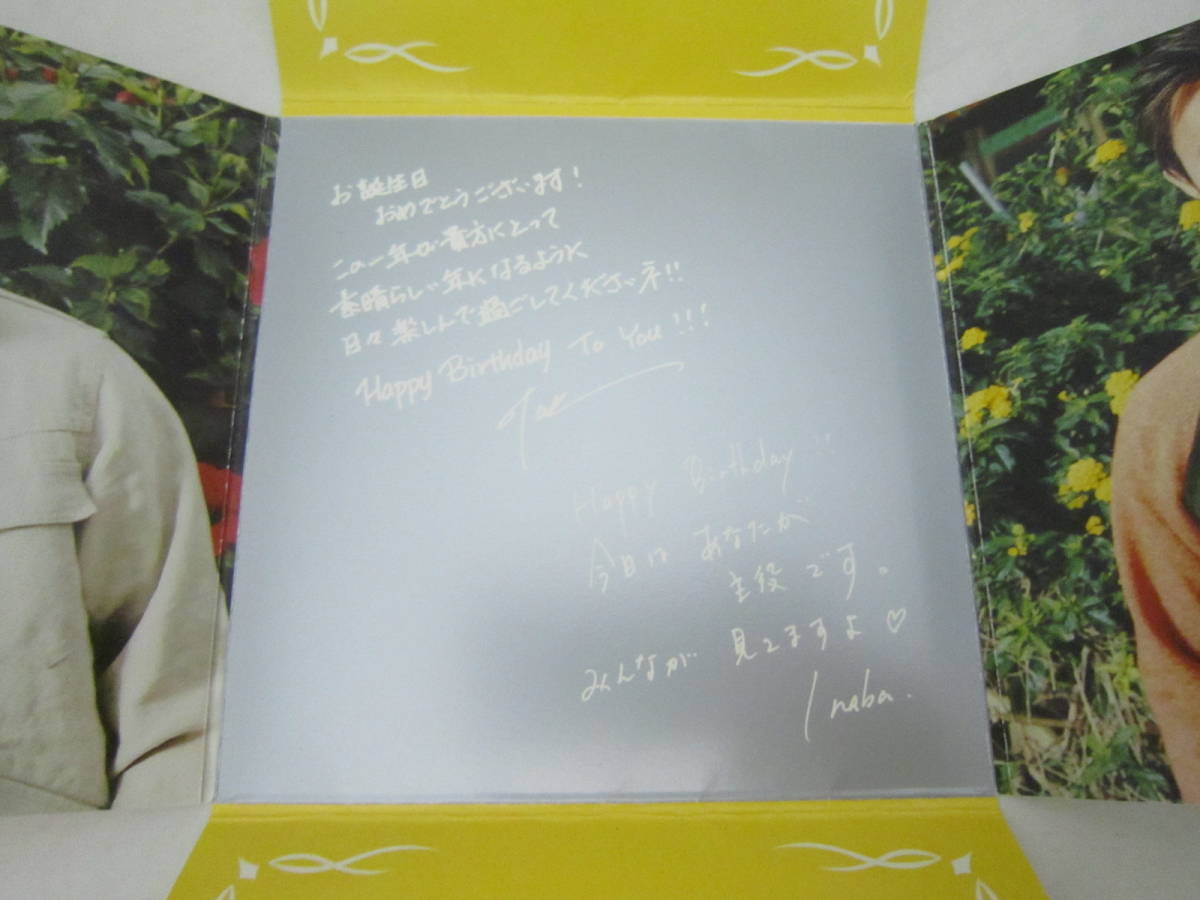 お誕生日
おめでとうございます!
この一年が貴方にとって
素晴らしい年になるように
日々楽しんで過ごしてくださいネ!!
Happy Birthday To You!!!
Tak
Happy Birthday!!
今日はあなたが
主役です。
みんなが 見てますよ♡
Inaba.